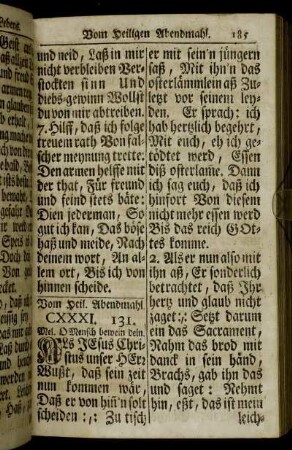 Vom Heiligen Abendmahl. 185
und neid, Laß in mir
nicht verbleiben Ver-
stockten sinn Und
diebs-gewinn Wollst
du von mir abtreiben.
7. Hilff, daß ich folge
treuem rath Von fal-
scher meynung trette,
Den armen helffe mit
der that, Für freund
und feind stets bäte:
Dien jederman, So
gut ich kan, Das böse
haß und meide, Nach
deinem wort, An al-
lem ort, Bis ich von
hinnen scheide.
Vom Heil. Abendmahl
CXXXI. 131.
Mel. O Mensch bewein dein.
ALs JEsus Chri-
stus unser HErr
Wußt, daß sein zeit
nun kommen wär,
Daß er von hiñ'n solt
scheiden :,: Zu tisch
er mit sein'n jüngern
saß, Mit ihn'n das
osterlämmlein aß Zu-
letzt vor seinem ley-
den. Er sprach: ich
hab hertzlich begehrt,
Mit euch, eh ich ge-
tödtet werd, Essen
diß osterlame. Dann
ich sag euch, daß ich
hinfort Von diesem
nicht mehr essen werd
Bis das reich GOt-
tes komme.
2. Als er nun also mit
ihn aß, Er sonderlich
betrachtet, daß Ihr
hertz und glaub nicht
zaget :,: Setzt darum
ein das Sacrament,
Nahm das brod mit
danck in sein händ,
Brachs, gab ihn das
und saget: Nehmt
hin, eßt, das ist mein
leich-